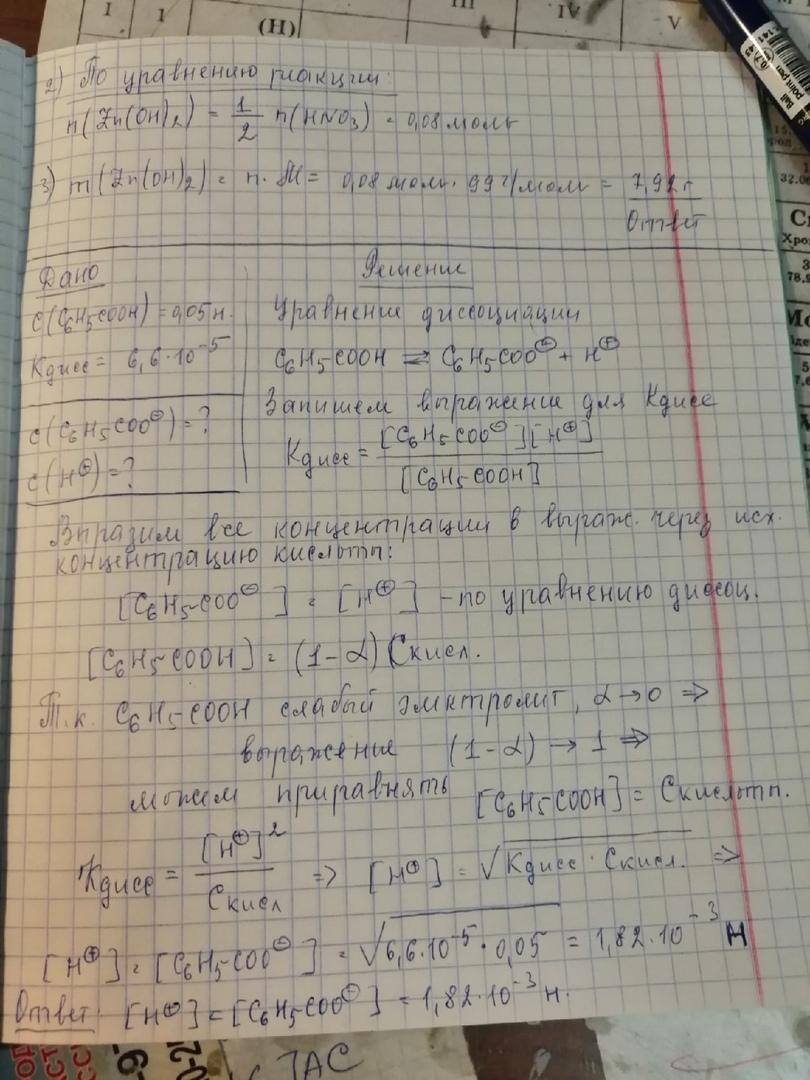 I 1 (H) III IV V
2) По уравнению реакции:
n(Zn(OH)2) = 1/2 n(HNO3) = 0,08 моль
3) m(Zn(OH)2) = n·M = 0,08 моль · 99 г/моль = 7,92 г
Ответ
Дано
C(C6H5COOH) = 0,05 н.
Kдисс = 6,6·10⁻⁵
C(C6H5COO⊖) = ?
C(H⊕) = ?
Решение
Уравнение диссоциации
C6H5-COOH ⇌ C6H5COO⊖ + H⊕
Запишем выражение для Kдисс
Kдисс = [C6H5COO⊖][H⊕] / [C6H5-COOH]
Выразим все концентрации в выраж. через исх.
концентрацию кислоты:
[C6H5-COO⊖] = [H⊕] - по уравнению диссоц.
[C6H5-COOH] = (1-α) Cкисл.
Т.к. C6H5-COOH слабый электролит, α → 0 ⇒
выражение (1-α) → 1 ⇒
можем приравнять [C6H5-COOH] = Cкислоты.
Kдисс = [H⊕]² / Cкисл ⇒ [H⊕] = √Kдисс · Cкисл. ⇒
[H⊕] = [C6H5-COO⊖] = √6,6·10⁻⁵ · 0,05 = 1,82·10⁻³ н
Ответ: [H⊕] = [C6H5-COO⊖] = 1,82·10⁻³ н.
Ball
point pen
Хро
78,9
32.0